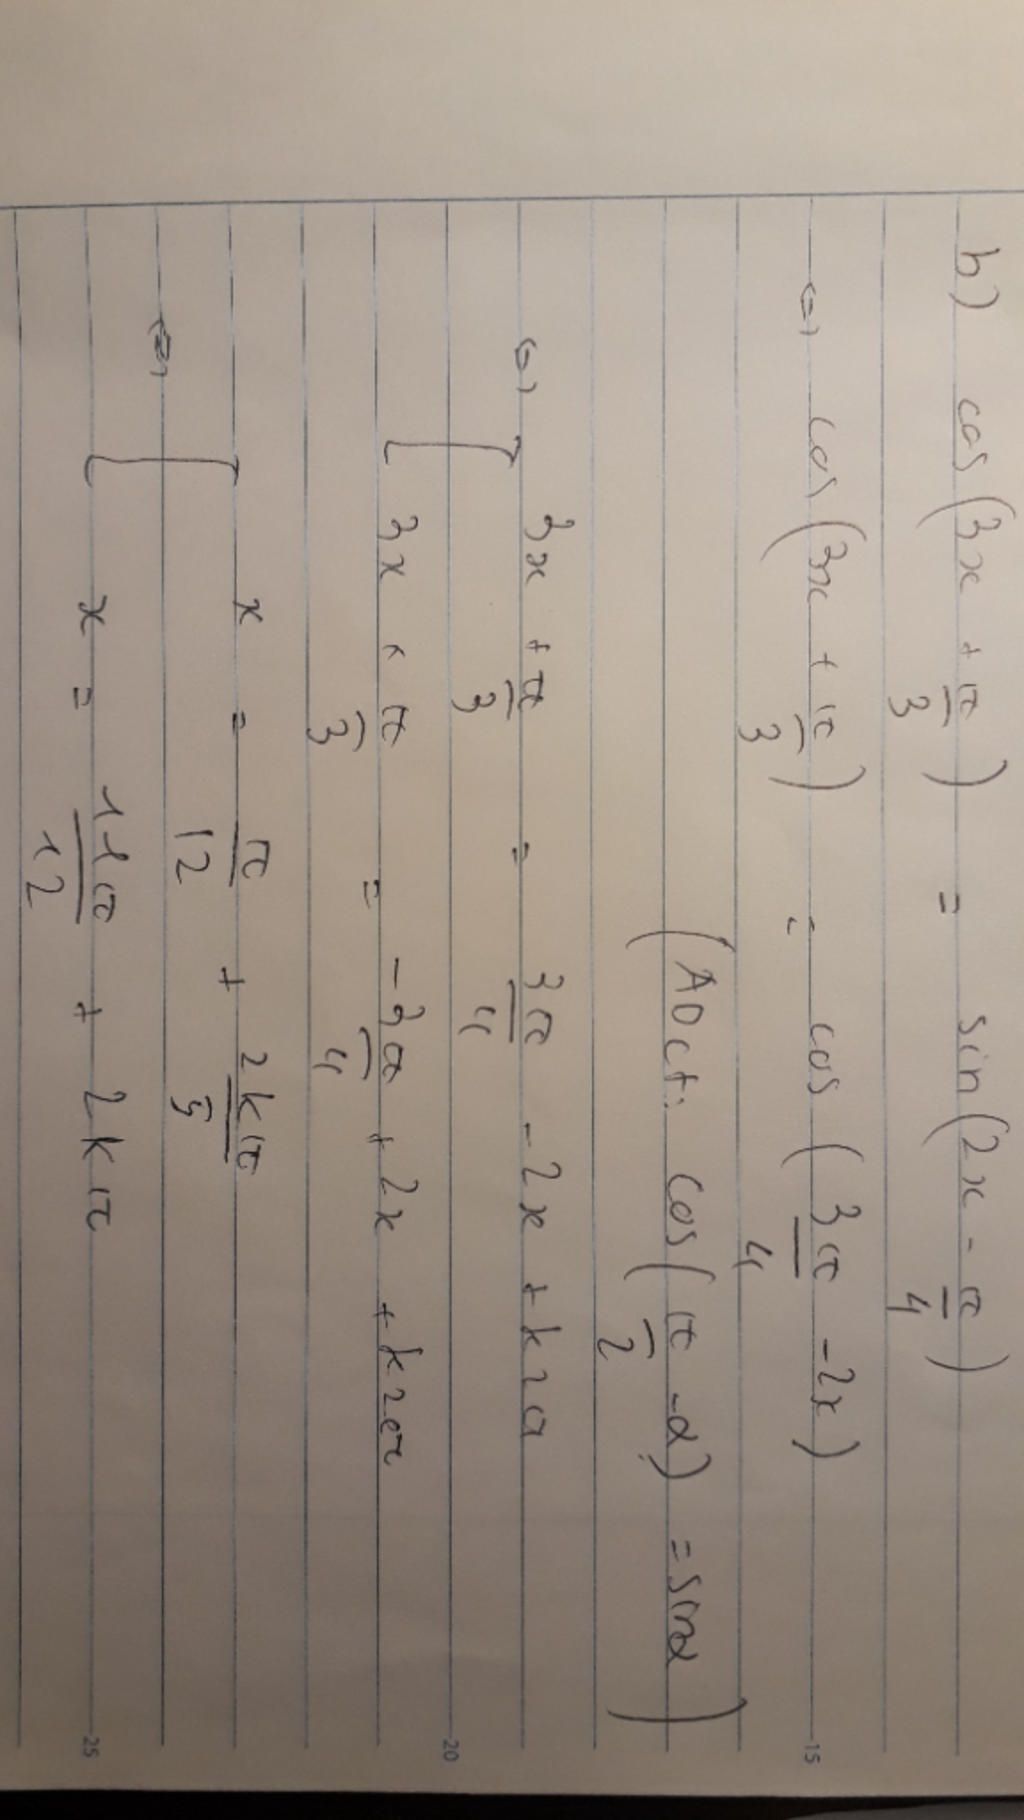 b) cos(3x + π/3) = sin(2x - π/4)
<=> cos(3x + π/3) = cos(3π/4 - 2x)
(ADCT: cos(π/2 - α) = sinα)
<=> [ 3x + π/3 = 3π/4 - 2x + k2π
3x + π/3 = -3π/4 + 2x + k2π
<=> [ x = π/12 + 2kπ/5
x = 11π/12 + 2kπ
15
20
25